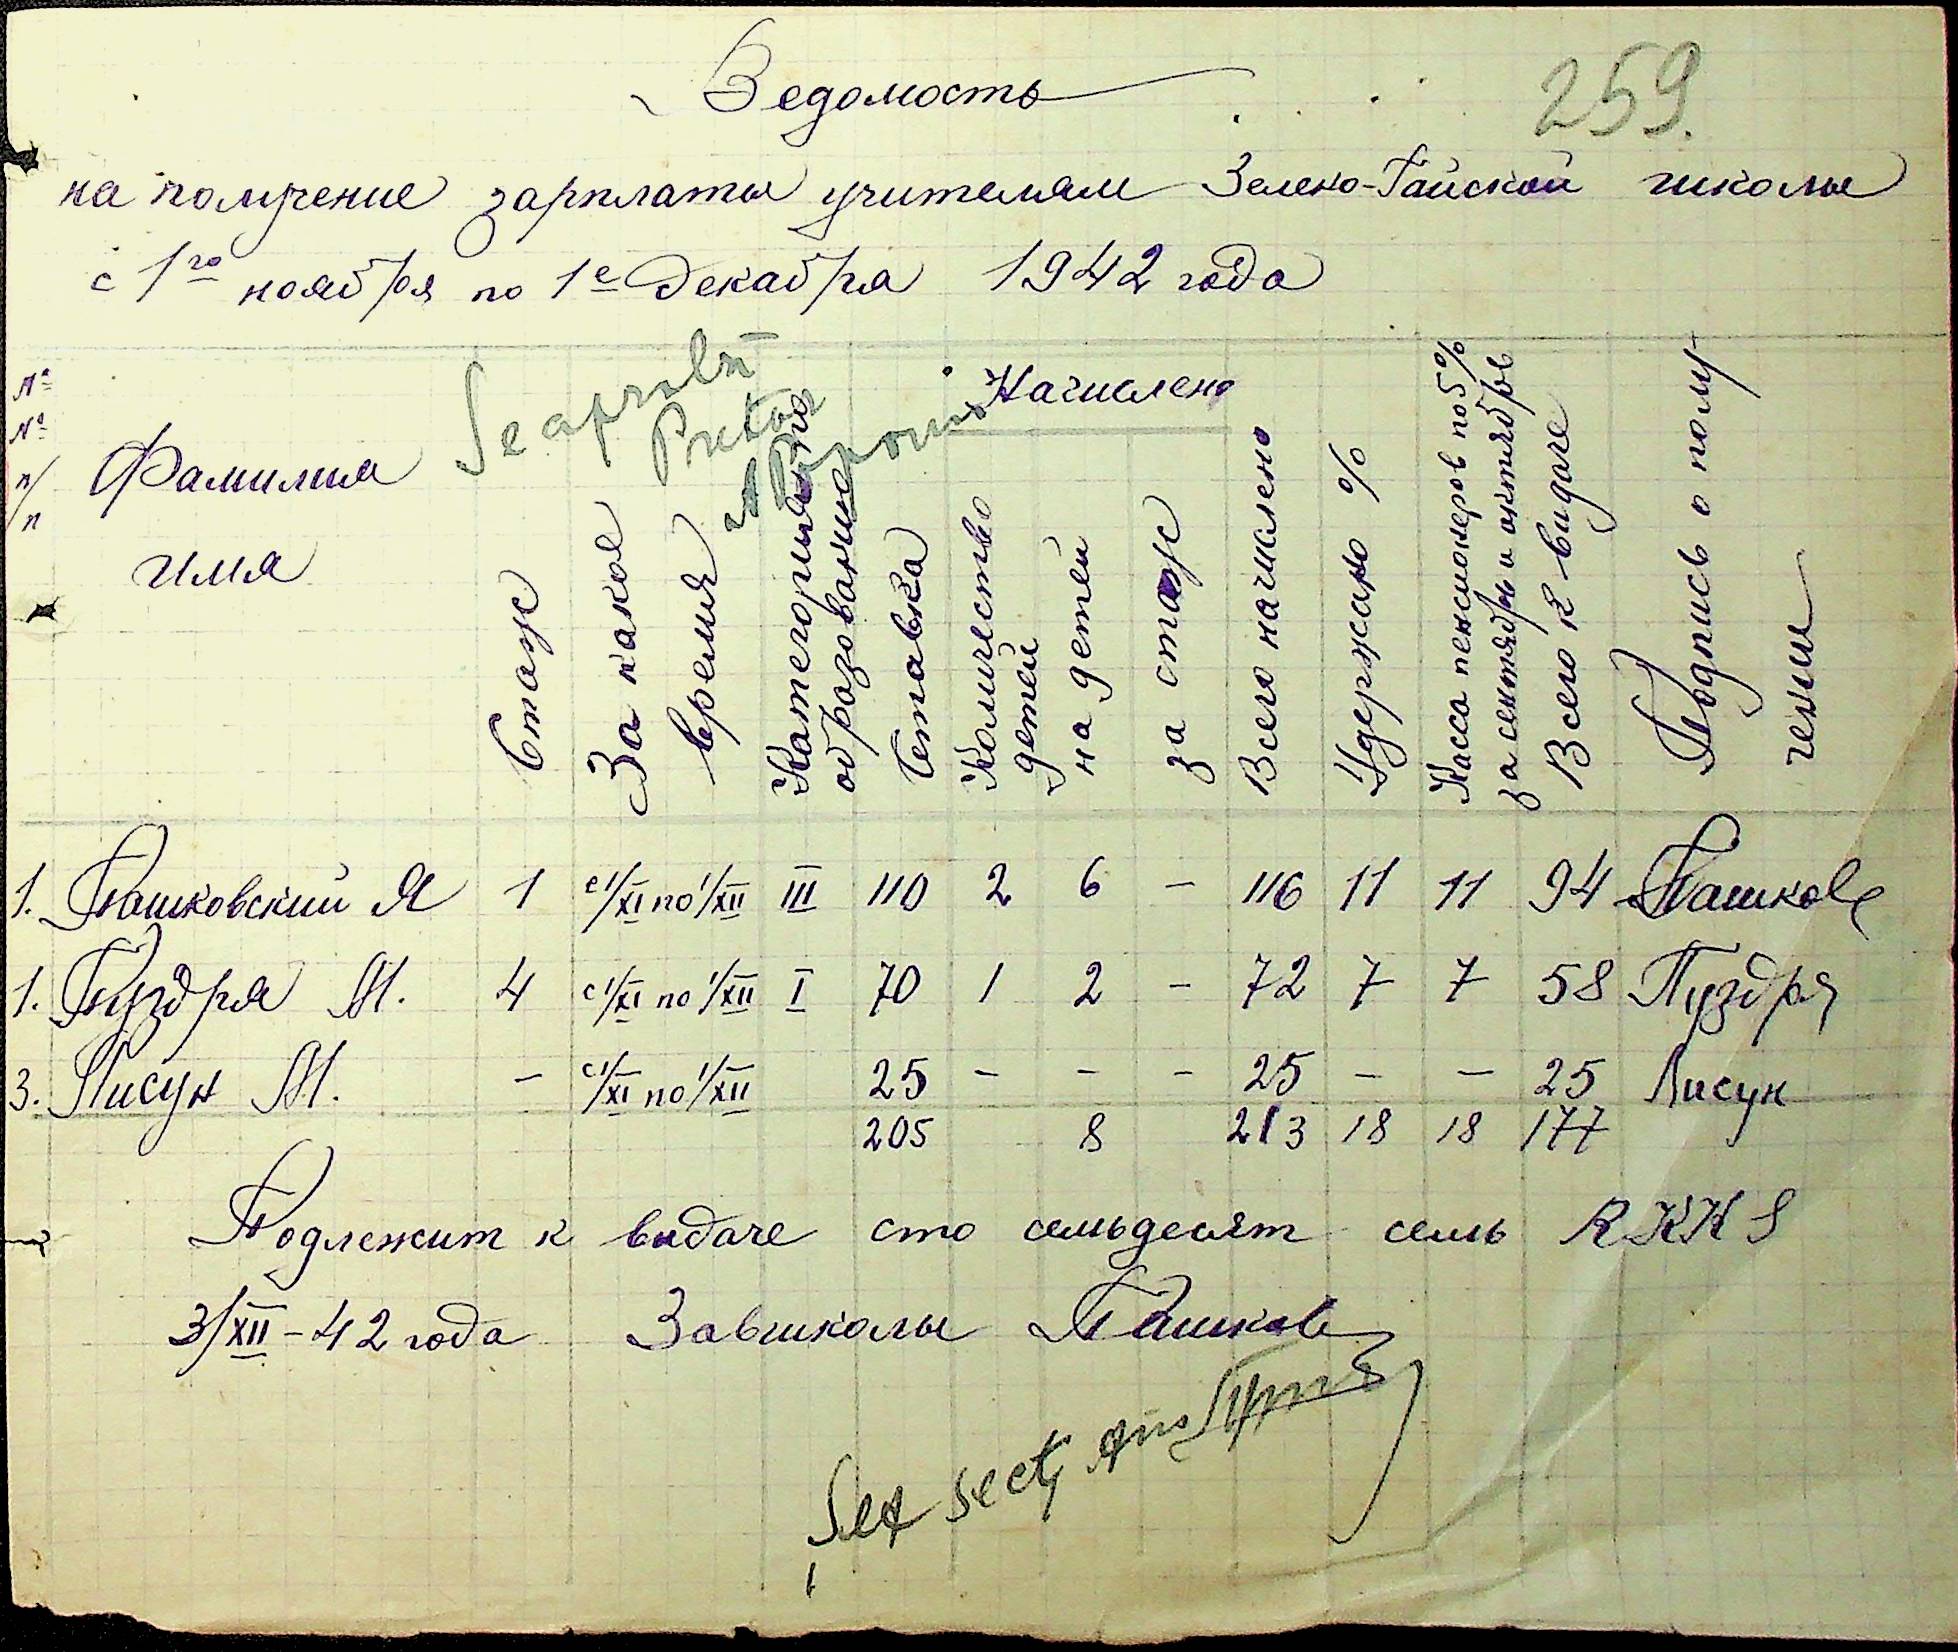 259.
Ведомость
на получение зарплаты учителям Зелено-Гайской школы
с 1го ноября по 1е декабря 1942 года
Se aprobă
Pretor
№ № п/п
Фамилия имя
Стаж
За какое время
Категория по образованию
Ставка
Начислено
Количество детей
на детей
за стаж
Всего начислено
Удержано %
Касса пенсионеров по 5% за сентябрь и октябрь
Всего к выдаче
Подпись о получении
1. Пашковский Я 1 с 1/XI по 1/XII III 110 2 6 – 116 11 11 94 Пашков
1. Пуздря М. 4 с 1/XI по 1/XII I 70 1 2 – 72 7 7 58 Пуздря
3. Лисун М. – с 1/XI по 1/XII 25 – – – 25 – – 25 Лисун
205 8 213 18 18 177
Подлежит к выдаче сто семьдесят семь RKKS
3/XII – 42 года Завшколы Пашков
Șef secț